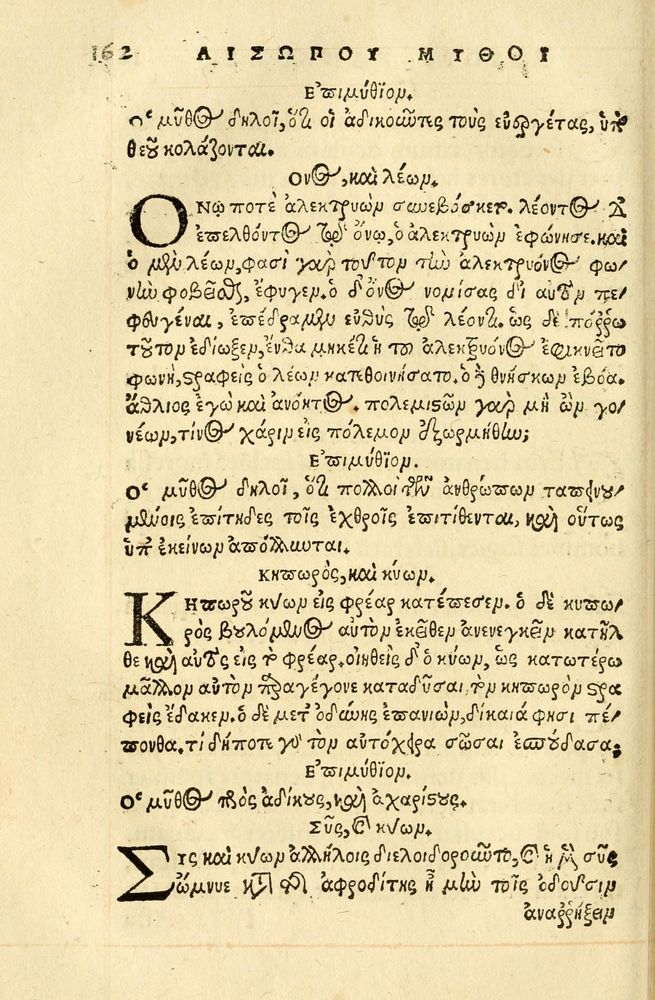 162 ΑΙΣΩΠΟΥ ΜΥΘΟΙ
Ἐπιμύθιον.
Ὁ μῦθος δηλοῖ, ὅτι οἱ ἀδικοῦντες τοὺς εὐεργέτας, ὑπὸ
θεοῦ κολάζονται.
Ὄνος, καὶ λέων.
ΟΝῼ ποτὲ ἀλεκτρυὼν συνεβόσκετο. λέοντος δ'
ἐπελθόντος τῷ ὄνῳ, ὁ ἀλεκτρυὼν ἐφώνησε. καὶ
ὁ μὲν λέων, φασὶ γὰρ τοῦτον τὴν ἀλεκτρυόνος φω-
νὴν φοβεῖσθαι, ἔφυγεν. ὁ δ' ὄνος νομίσας δι' αὐτὸν πε-
φευγέναι, ἐπέδραμεν εὐθὺς τῷ λέοντι. ὡς δὲ πόρρω
τοῦτον ἐδίωξεν, ἔνθα μηκέτι ἡ τοῦ ἀλεκτρυόνος ἐφικνεῖτο
φωνὴ, στραφεὶς ὁ λέων κατεθοινήσατο. ὁ δὲ θνήσκων ἐβόα.
ἄθλιος ἐγὼ καὶ ἀνόητος. πολεμιστῶν γὰρ μὴ ὢν γο-
νέων, τίνος χάριν εἰς πόλεμον ἐξωρμήθην;
Ἐπιμύθιον.
Ὁ μῦθος δηλοῖ, ὅτι πολλοὶ τῶν ἀνθρώπων ταπεινου-
μένοις ἐπίτηδες τοῖς ἐχθροῖς ἐπιτίθενται, καὶ οὕτως
ὑπ' ἐκείνων ἀπόλλυνται.
Κηπωρὸς, καὶ κύων.
ΚΗπωροῦ κύων εἰς φρέαρ κατέπεσεν. ὁ δὲ κηπω-
ρὸς βουλόμενος αὐτὸν ἐκεῖθεν ἀνενεγκεῖν κατῆλ
θε καὶ αὐτὸς εἰς τὸ φρέαρ. οἰηθεὶς δ' ὁ κύων, ὡς κατωτέρω
μᾶλλον αὐτὸν παραγέγονε καταδῦσαι, τὸν κηπωρὸν στρα
φεὶς ἔδακεν. ὁ δὲ μετ' ὀδύνης ἐπανιὼν, δίκαιά φησι πέ-
πονθα. τί δήποτε γὰρ τὸν αὐτόχειρα σῶσαι ἐσπούδασα;
Ἐπιμύθιον.
Ὁ μῦθος πρὸς ἀδίκους, καὶ ἀχαρίστους.
Σῦς, καὶ κύων.
ΣΥς καὶ κύων ἀλλήλοις διελοιδοροῦντο, καὶ ἡ μὲν σῦς
ὤμνυε κατὰ τῆς ἀφροδίτης ἦ μὴν τοῖς ὀδοῦσιν
ἀναρρήξειν